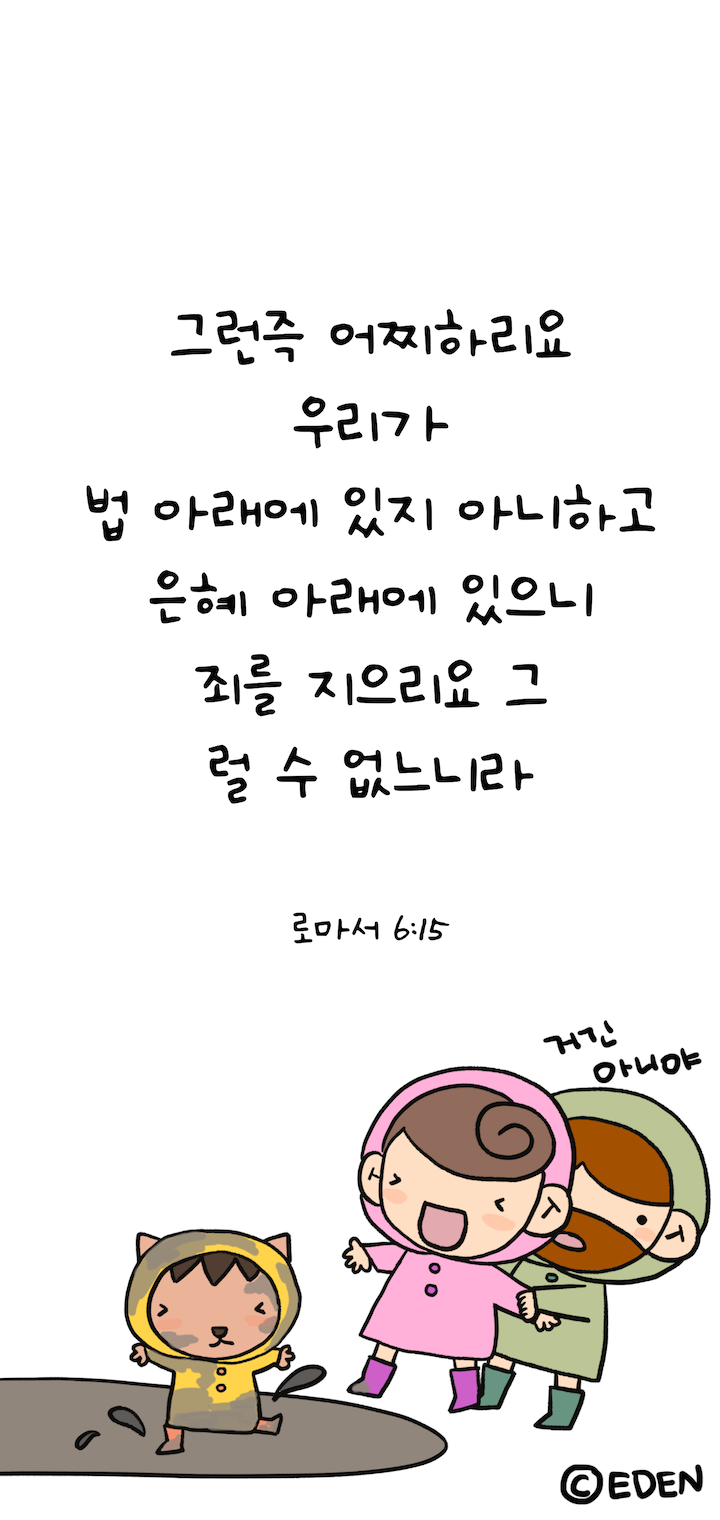 그런즉 어찌하리요
우리가
법 아래에 있지 아니하고
은혜 아래에 있으니
죄를 지으리요 그
럴 수 없느니라
로마서 6:15
거긴
아니야
©EDEN